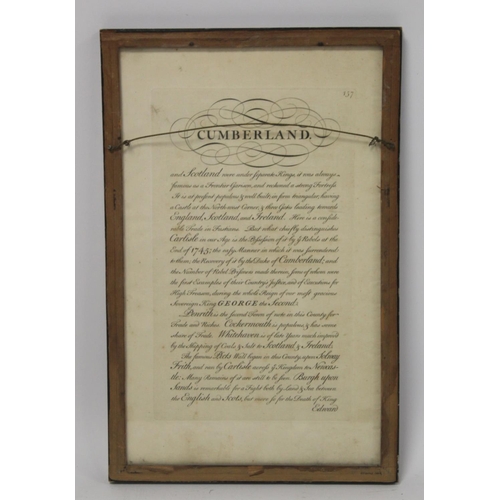 137
CUMBERLAND.
and Scotland were under separate Kings, it was always
famous as a Frontier Garison, and reckoned a strong Fortress
It is at present populous & well built, in form triangular, having
a Castle at the North west Corner, & three Gates leading towards
England, Scotland, and Ireland. Here is a conside
rable Trade in Fustians. But what chiefly distinguishes
Carlisle in our Age is the Possession of it by ye Rebels at the
End of 1745; the easy Manner in which it was surrendered
to them; the Recovery of it by the Duke of Cumberland; and
the Number of Rebel Prisoners made therein, some of whom were
the first Examples of their Country's Justice, and of Executions for
High Treason, during the whole Reign of our most gracious
Sovereign King GEORGE the Second:
Penrith is the second Town of note in this County for
Trade and Riches. Cockermouth is populous, & has some
share of Trade. Whitehaven is of late Years much inriched
by the Shipping of Coals & Salt to Scotland & Ireland;
The famous Picts Wall began in this County, upon Solway
Frith, and ran by Carlisle across ye Kingdom to Newcas-
tle: Many Remains of it are still to be seen. Burgh upon
Sands is remarkable for a Fight both by Land & Sea between
the English and Scots, but more so for the Death of King
Edward